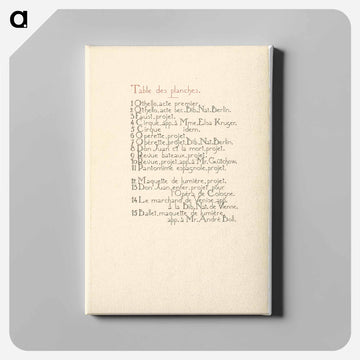 a
Table des planches.
1 Othello, acte premier.
2 Othello, acte sec. Bib. Nat. Berlin.
3 Faust, projet.
4 Cirque app. à Mme. Elsa Krüger.
5 Cirque idem.
6 Operette, projet.
7 Opérette, projet. Bib. Nat. Berlin.
8 Don Juan et la mort, projet.
9 Revue bateaux, projet.
10 Revue, projet app. à Mr. Gutchow.
11 Pantomime espagnole, projet.
12 Maquette de lumière, projet.
13 Don Juan, enfer, projet pour
l'Opéra de Cologne.
14 Le marchand de Venise, app.
à la Bib. Nat. de Vienne.
15 Ballet, maquette de lumière,
app. à Mr. André Boll.